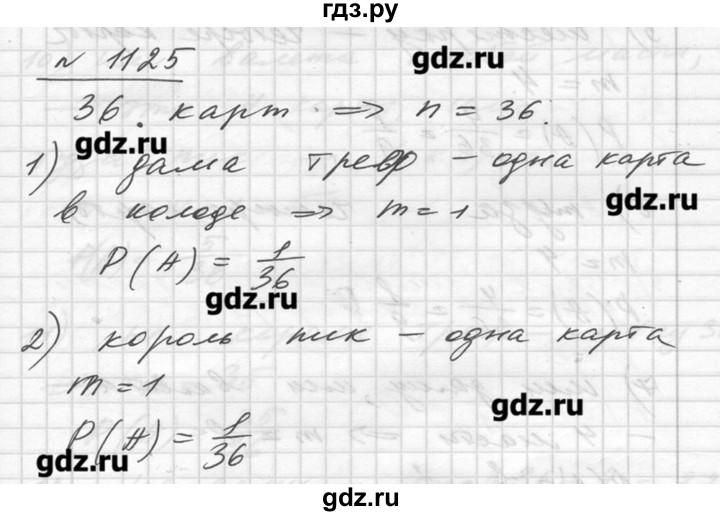 гдз.ру
№ 1125
gdz.ru
36 карт. => n = 36.
gdz.ru
1) дама треф – одна карта
gdz.ru
в колоде => m = 1
P(A) = 1/36
gdz.ru
2) король пик – одна карта
m = 1
gdz.ru
P(A) = 1/36
gdz.ru
gdz.ru